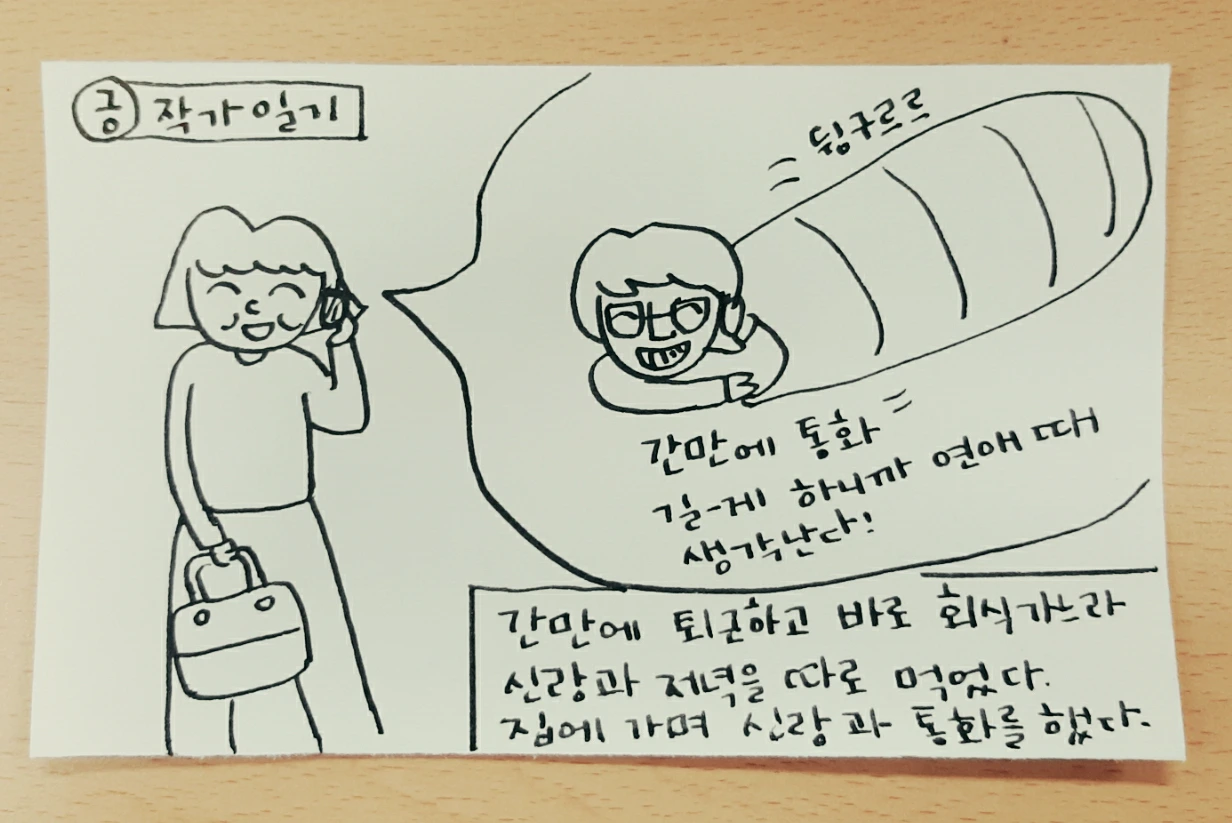 공 작가일기
= 뒹구르르 =
간만에 통화
길-게 하니까 연애 때
생각난다!
간만에 퇴근하고 바로 회식가느라
신랑과 저녁을 따로 먹었다.
집에 가며 신랑과 통화를 했다.